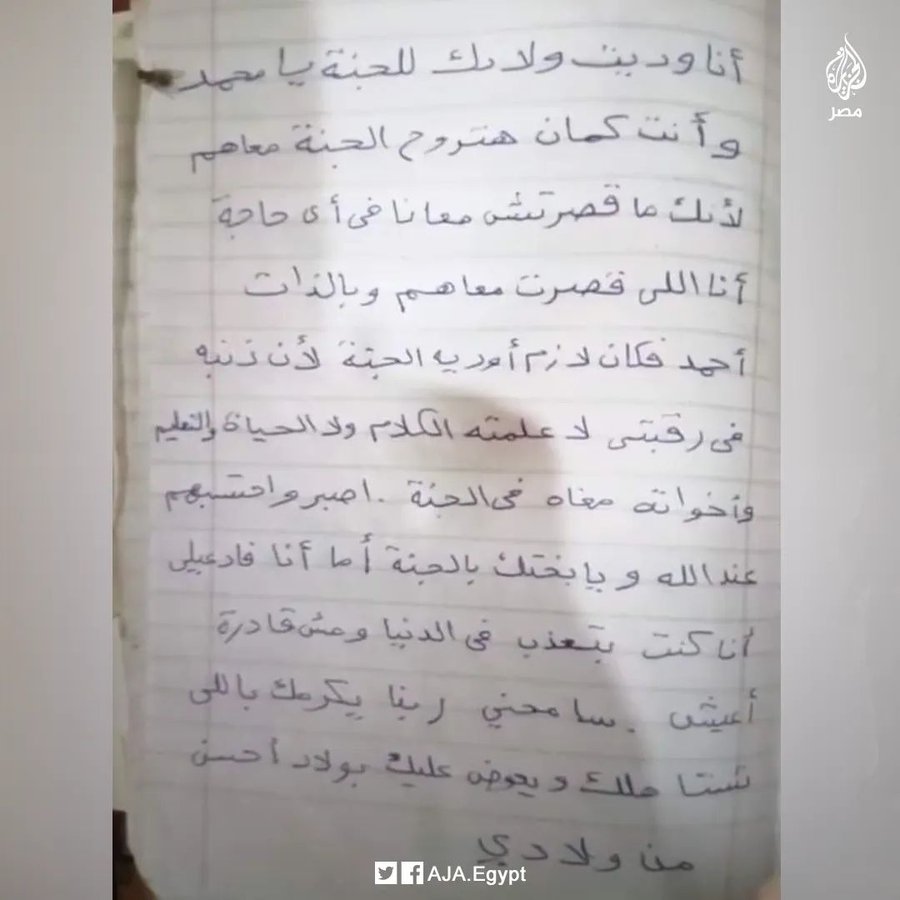 أنا وديت ولادك للجنة يا محمد
وأنت كمان هتروح الجنة معاهم
لأنك ما قصرتش معانا فى أى حاجة
أنا اللى قصرت معاهم وبالذات
أحمد فكان لازم أوديه الجنة لأن ذنبه
فى رقبتى لا علمته الكلام ولا الحياة والتعليم
وأخواته معاه فى الجنة . اصبر واحتسبهم
عند الله ويا بختك بالجنة أما أنا فادعيلى
أنا كنت بتعذب فى الدنيا ومش قادرة
أعيش . سامحني ربنا يكرمك باللى
تستاهلك ويعوض عليك بولاد أحسن
من ولادي
الجزيرة
مصر
AJA.Egypt